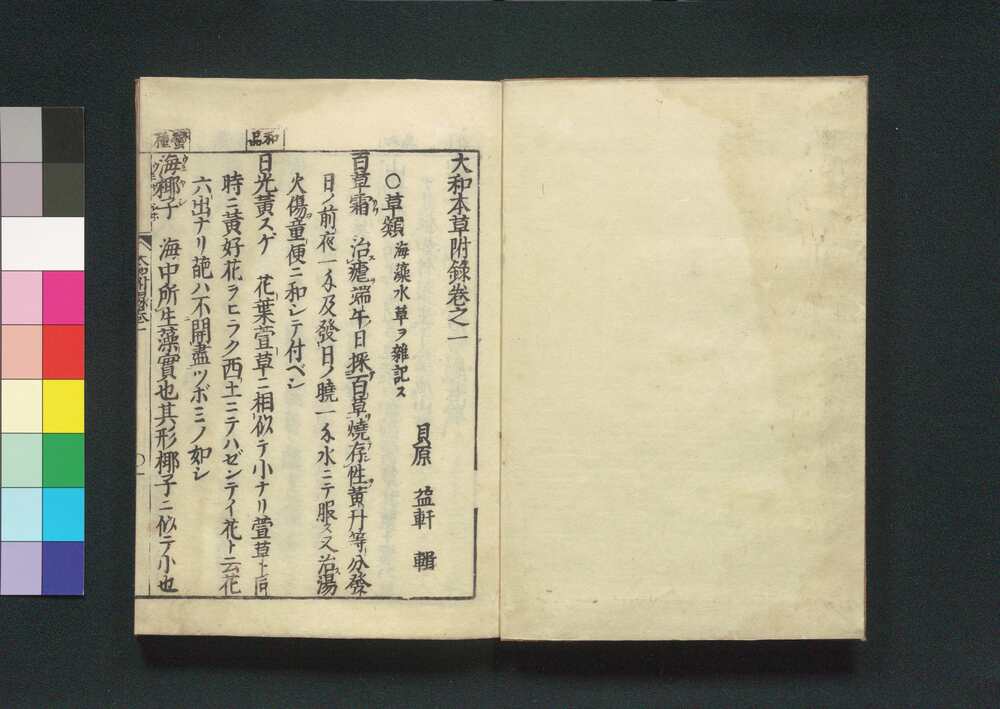 大和本草附錄卷之一
貝原 益軒 輯
○草類 海藻水草ヲ雜記ス
百草霜 治瘧端午日採百草燒存性黃丹等分發
日ノ前夜一匁及發日ノ曉一匁水ニテ服ス又治湯
火傷童便ニ和シテ付ベシ
和品
日光黃スゲ 花葉萱草ニ相似テ小ナリ萱草ト同
時ニ黃好花ヲヒラク西土ニテハゼンテイ花ト云花
六出ナリ葩ハ不開盡ツボミノ如シ
蠻種
海椰子 海中所生藻實也其形椰子ニ似テ小也